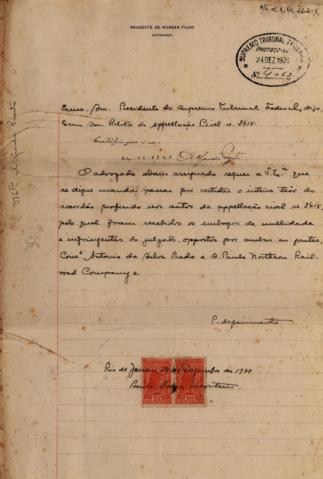 PRUDENTE DE MORAES FILHO
ADVOGADO
SUPREMO TRIBUNAL
PROTOCOLO
24 DEZ 1921
Nº
Exmo. Snr. Presidente do Supremo Tribunal Federal, digo
Exmo Snr. Relator da appellação Civel n. 3415.
Certifique-se
O advogado abaixo assignado requer a V. Exª. que
se digne mandar passar por certidão o inteiro theor do
accordão proferido nos autos da appellação civel nº 3415,
pelo qual foram recebidos os embargos de nullidade
e infringentes do julgado, oppostos por ambas as partes,
Consº Antonio da Silva Prado e S. Paulo Northern Rail-
road Company.
P. deferimento
Rio de Janeiro, 24 de Dezembro de